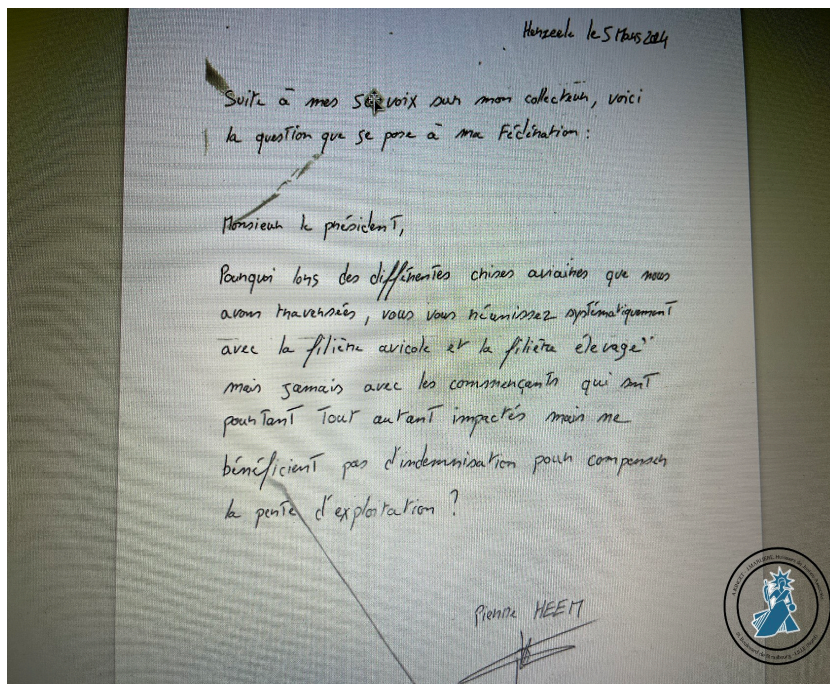 Herzeele le 5 Mars 2024
Suite à mes voix sur mon collecteur, voici
la question que se pose à ma Fédération :
Monsieur le président,
Pourquoi lors des différentes crises aviaires que nous
avons traversées, vous vous réunissez systématiquement
avec la filière avicole et la filière élevage"
mais jamais avec les commerçants qui sont
pourtant tout autant impactés mais ne
bénéficient pas d'indemnisation pour compenser
la perte d'exploitation ?
Pierre HEEM